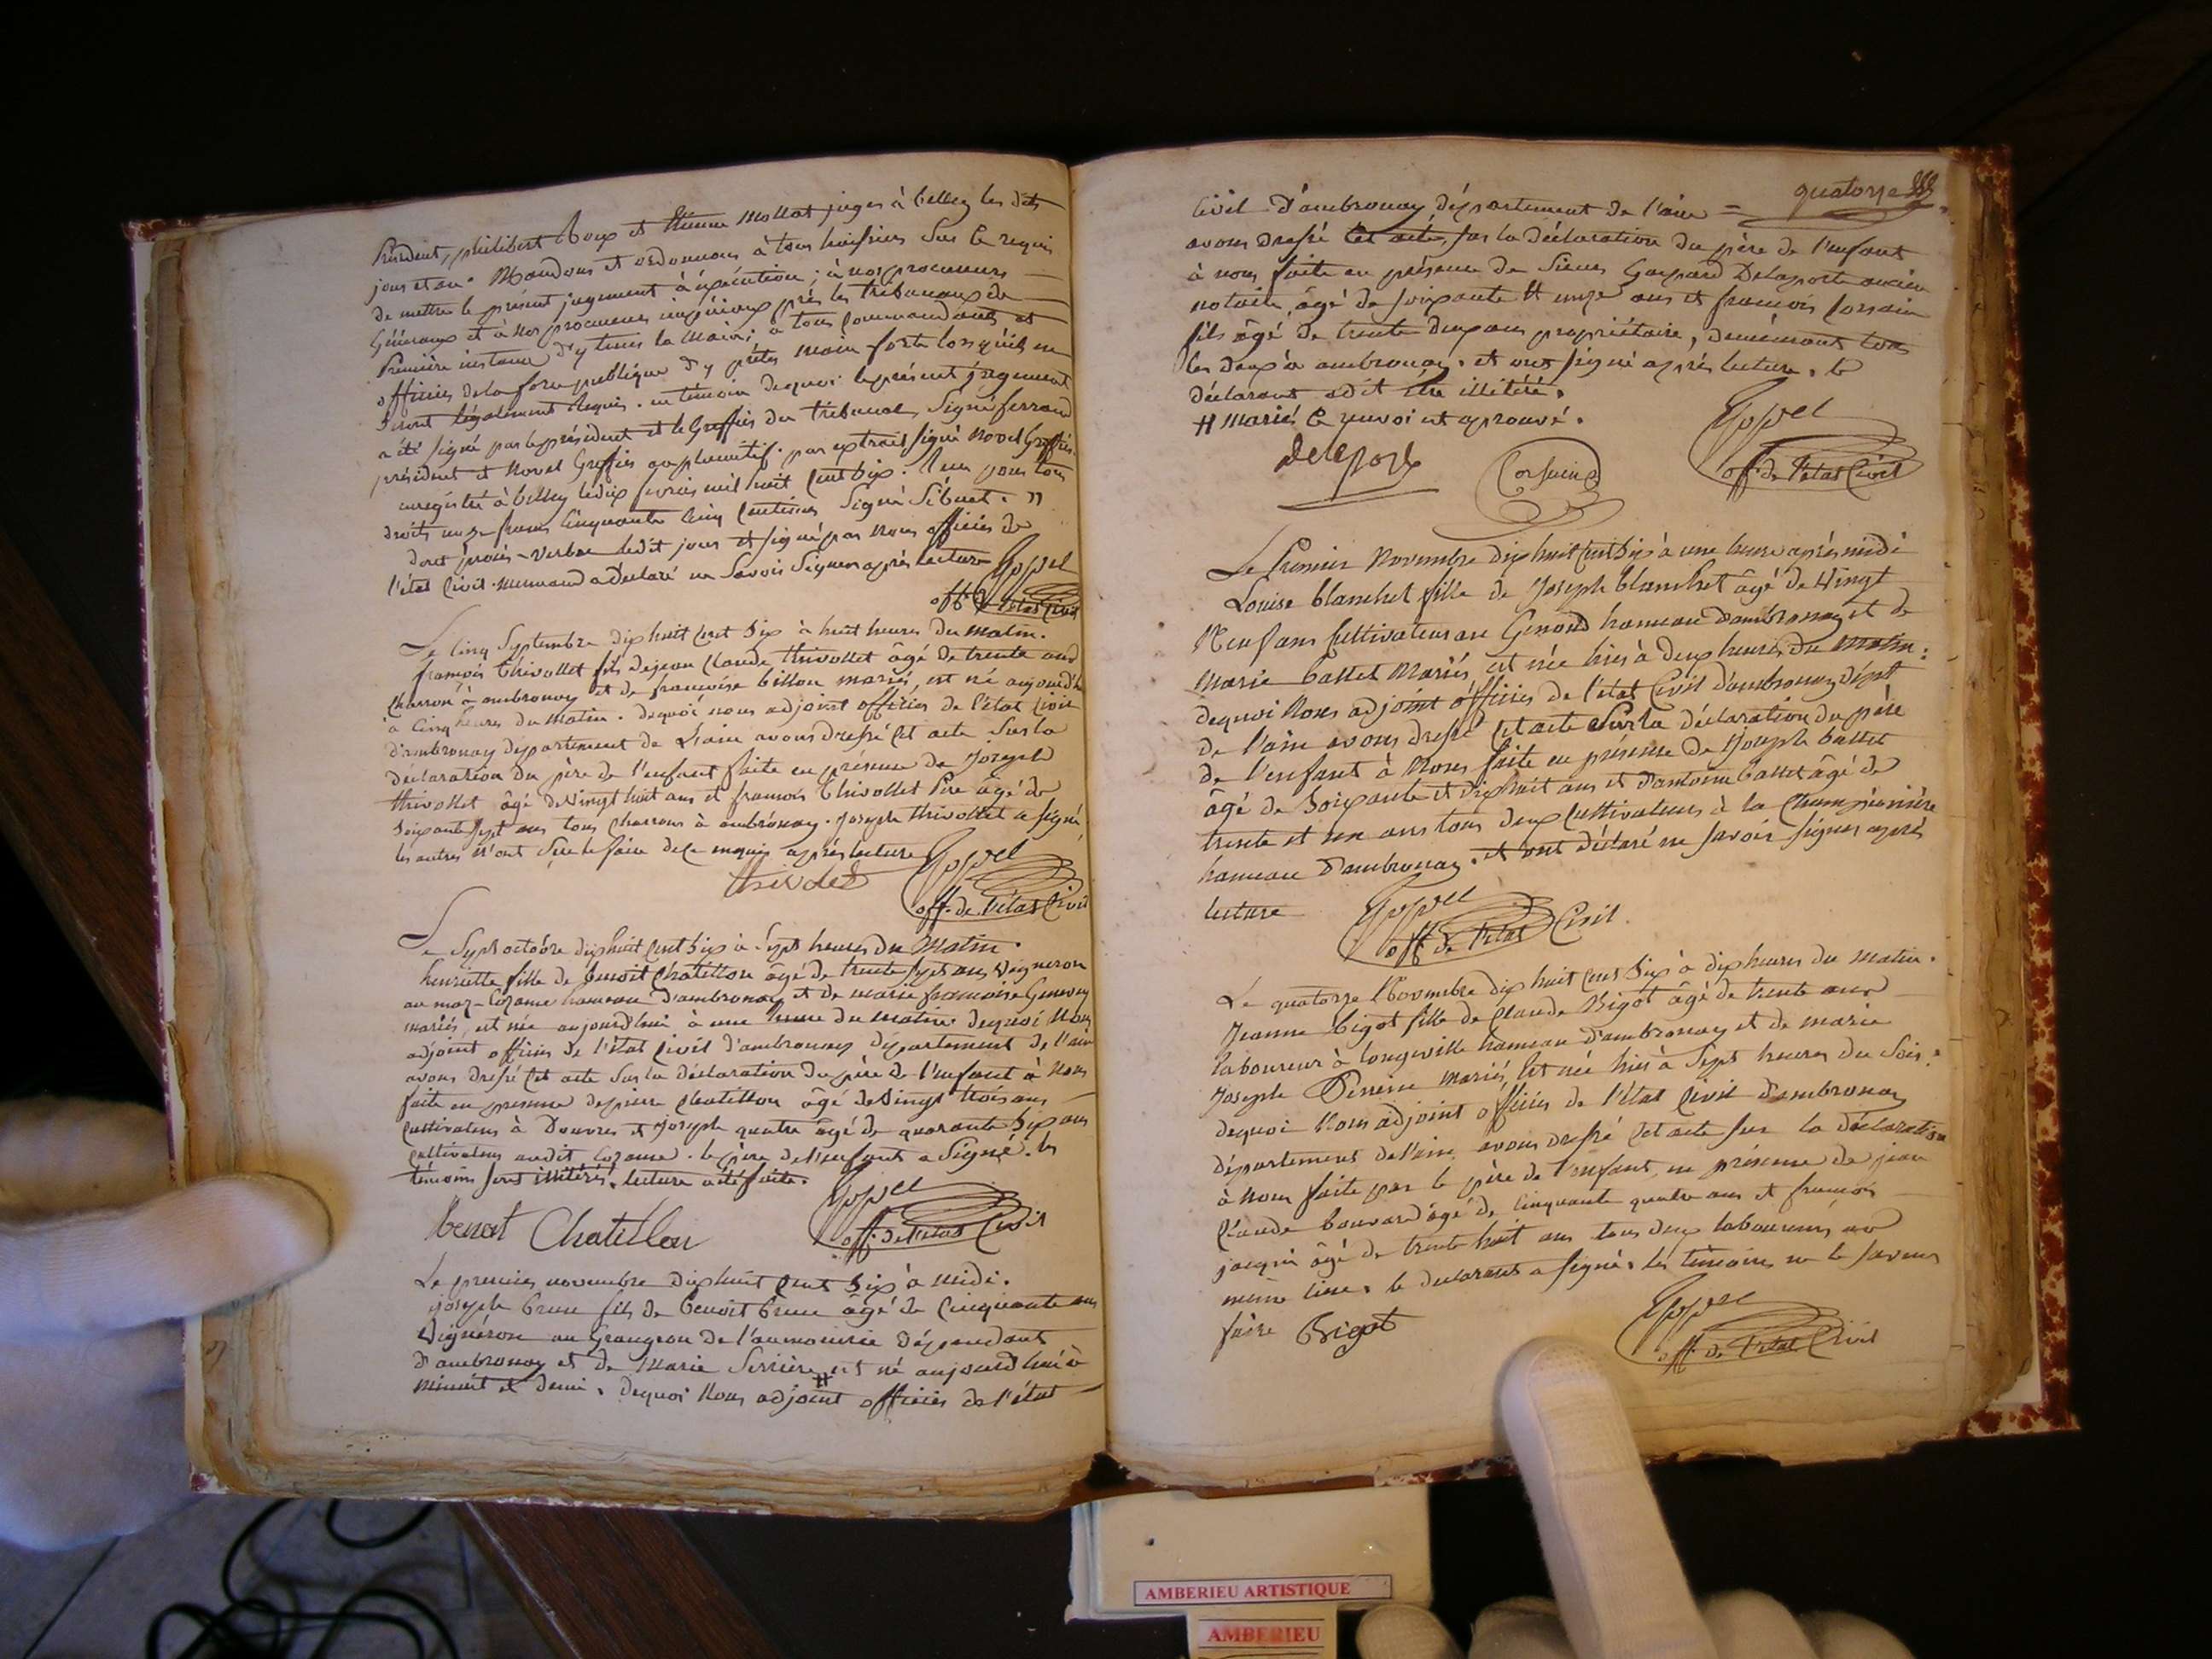 Président, philibert Roux et Etienne Mollat juges à belley les dits
jour et an. Mandons et ordonnons à tous huissiers sur ce requis
de mettre le présent jugement à exécution ; à nos procureurs
Généraux et à nos procureurs impériaux près les tribunaux de
Première instance d'y tenir la main ; à tous commandants et
officiers de la force publique d'y prêter main forte lorsqu'ils en
seront légalement requis. en témoin dequoi le présent jugement
a été signé par le président et le Greffier du tribunal, Signé ferrand
président et Rovel Greffier au plumitif. par extrait signé Rovel Greffier
enregistré à belley le dix fevrier mil huit cent dix. Reçu pour tous
droits onze francs cinquante cinq centimes Signé Sibuet. "
dont procès-verbal ledit jour et signé par nous officier de
l'état civil. a déclaré ne savoir signer après lecture
off. de l'état civil
Le cinq Septembre dix huit cent dix à huit heures du matin.
françois thivollet fils de jean claude thivollet âgé de trente ans
charron à ambronay et de françoise billon mariés, est né aujourd'hui
à cinq heures du matin. dequoi nous adjoint officier de l'état civil
d'ambronay département de l'ain avons dressé cet acte sur la
déclaration du père de l'enfant faite en présence de Joseph
thivollet âgé de vingt huit ans et françois thivollet Père âgé de
soixante sept ans tous charrons à ambronay. joseph thivollet a signé
les autres n'ont su le faire de ce enquis après lecture
thivolet
off. de l'état civil
Le Sept octobre dix huit cent dix à sept heures du matin.
henriette fille de benoit Chatillon âgé de trente sept ans, vigneron
au hameau d'ambronay et de marie françoise
mariés, est née aujourd'hui à une heure du matin dequoi Nous
adjoint officier de l'état civil d'ambronay département de l'ain
avons dressé cet acte sur la déclaration du père de l'enfant à nous
faite en présence de pierre chatillon âgé de vingt trois ans
cultivateur à Douvres et joseph quatre âgé de quarante dix ans
cultivateur audit . le père de l'enfant a signé. les
témoins sont illitérés. lecture a été faite.
benoit Chatillon
off. de l'état civil
Le premier novembre dix huit cent dix à midi.
joseph brun fils de benoit brun âgé de cinquante ans
vigneron au Grangeon de l'aumonerie dépendant
d'ambronay et de marie Serrière # est né aujourd'hui à
minuit et demi. dequoi Nous adjoint officier de l'état
quatorze
civil d'ambronay département de l'ain =
avons dressé cet acte, sur la déclaration du père de l'enfant
à nous faite en présence de sieurs Gaspard Delaporte ancien
notaire, âgé de soixante et onze ans et françois corsain
fils âgé de trente deux ans propriétaire, demeurant tous
les deux à ambronay. et ont signé après lecture. le
déclarant a dit être illitéré.
# mariés ce renvoi est aprouvé.
delaporte
Corsain
off. de l'état civil
Le Premier Novembre dix huit cent dix à une heure après midi
Louise blanchet fille de Joseph blanchet âgé de vingt
Neuf ans cultivateur au Genoud hameau d'ambronay et de
marie ballet mariés, est née hier à deux heures du matin :
dequoi Nous adjoint officier de l'état civil d'ambronay dépt
de l'ain avons dressé cet acte sur la déclaration du père
de l'enfant à Nous faite en présence de Joseph ballet
âgé de soixante et dix huit ans et d'antoine ballet âgé de
trente et un ans tous deux cultivateurs à la
hameau d'ambronay. et ont déclaré ne savoir signer après
lecture
off. de l'état civil.
Le quatorze Novembre dix huit cent dix à dix heures du matin.
Jeanne bigot fille de claude Bigot âgé de trente ans
laboureur à longeville hameau d'ambronay et de marie
Joseph Perrin mariés, est née hier à sept heures du soir.
dequoi Nous adjoint officier de l'état civil d'ambronay
département de l'ain, avons dressé cet acte sur la déclaration
à Nous faite par le père de l'enfant, en présence de jean
claude bouvard âgé de cinquante quatre ans et françois
jacquin âgé de trente huit ans tous deux laboureurs au
même lieu. le déclarant a signé. les témoins ne le savent
faire Bigot
off. de l'état civil
AMBERIEU ARTISTIQUE
AMBERIEU